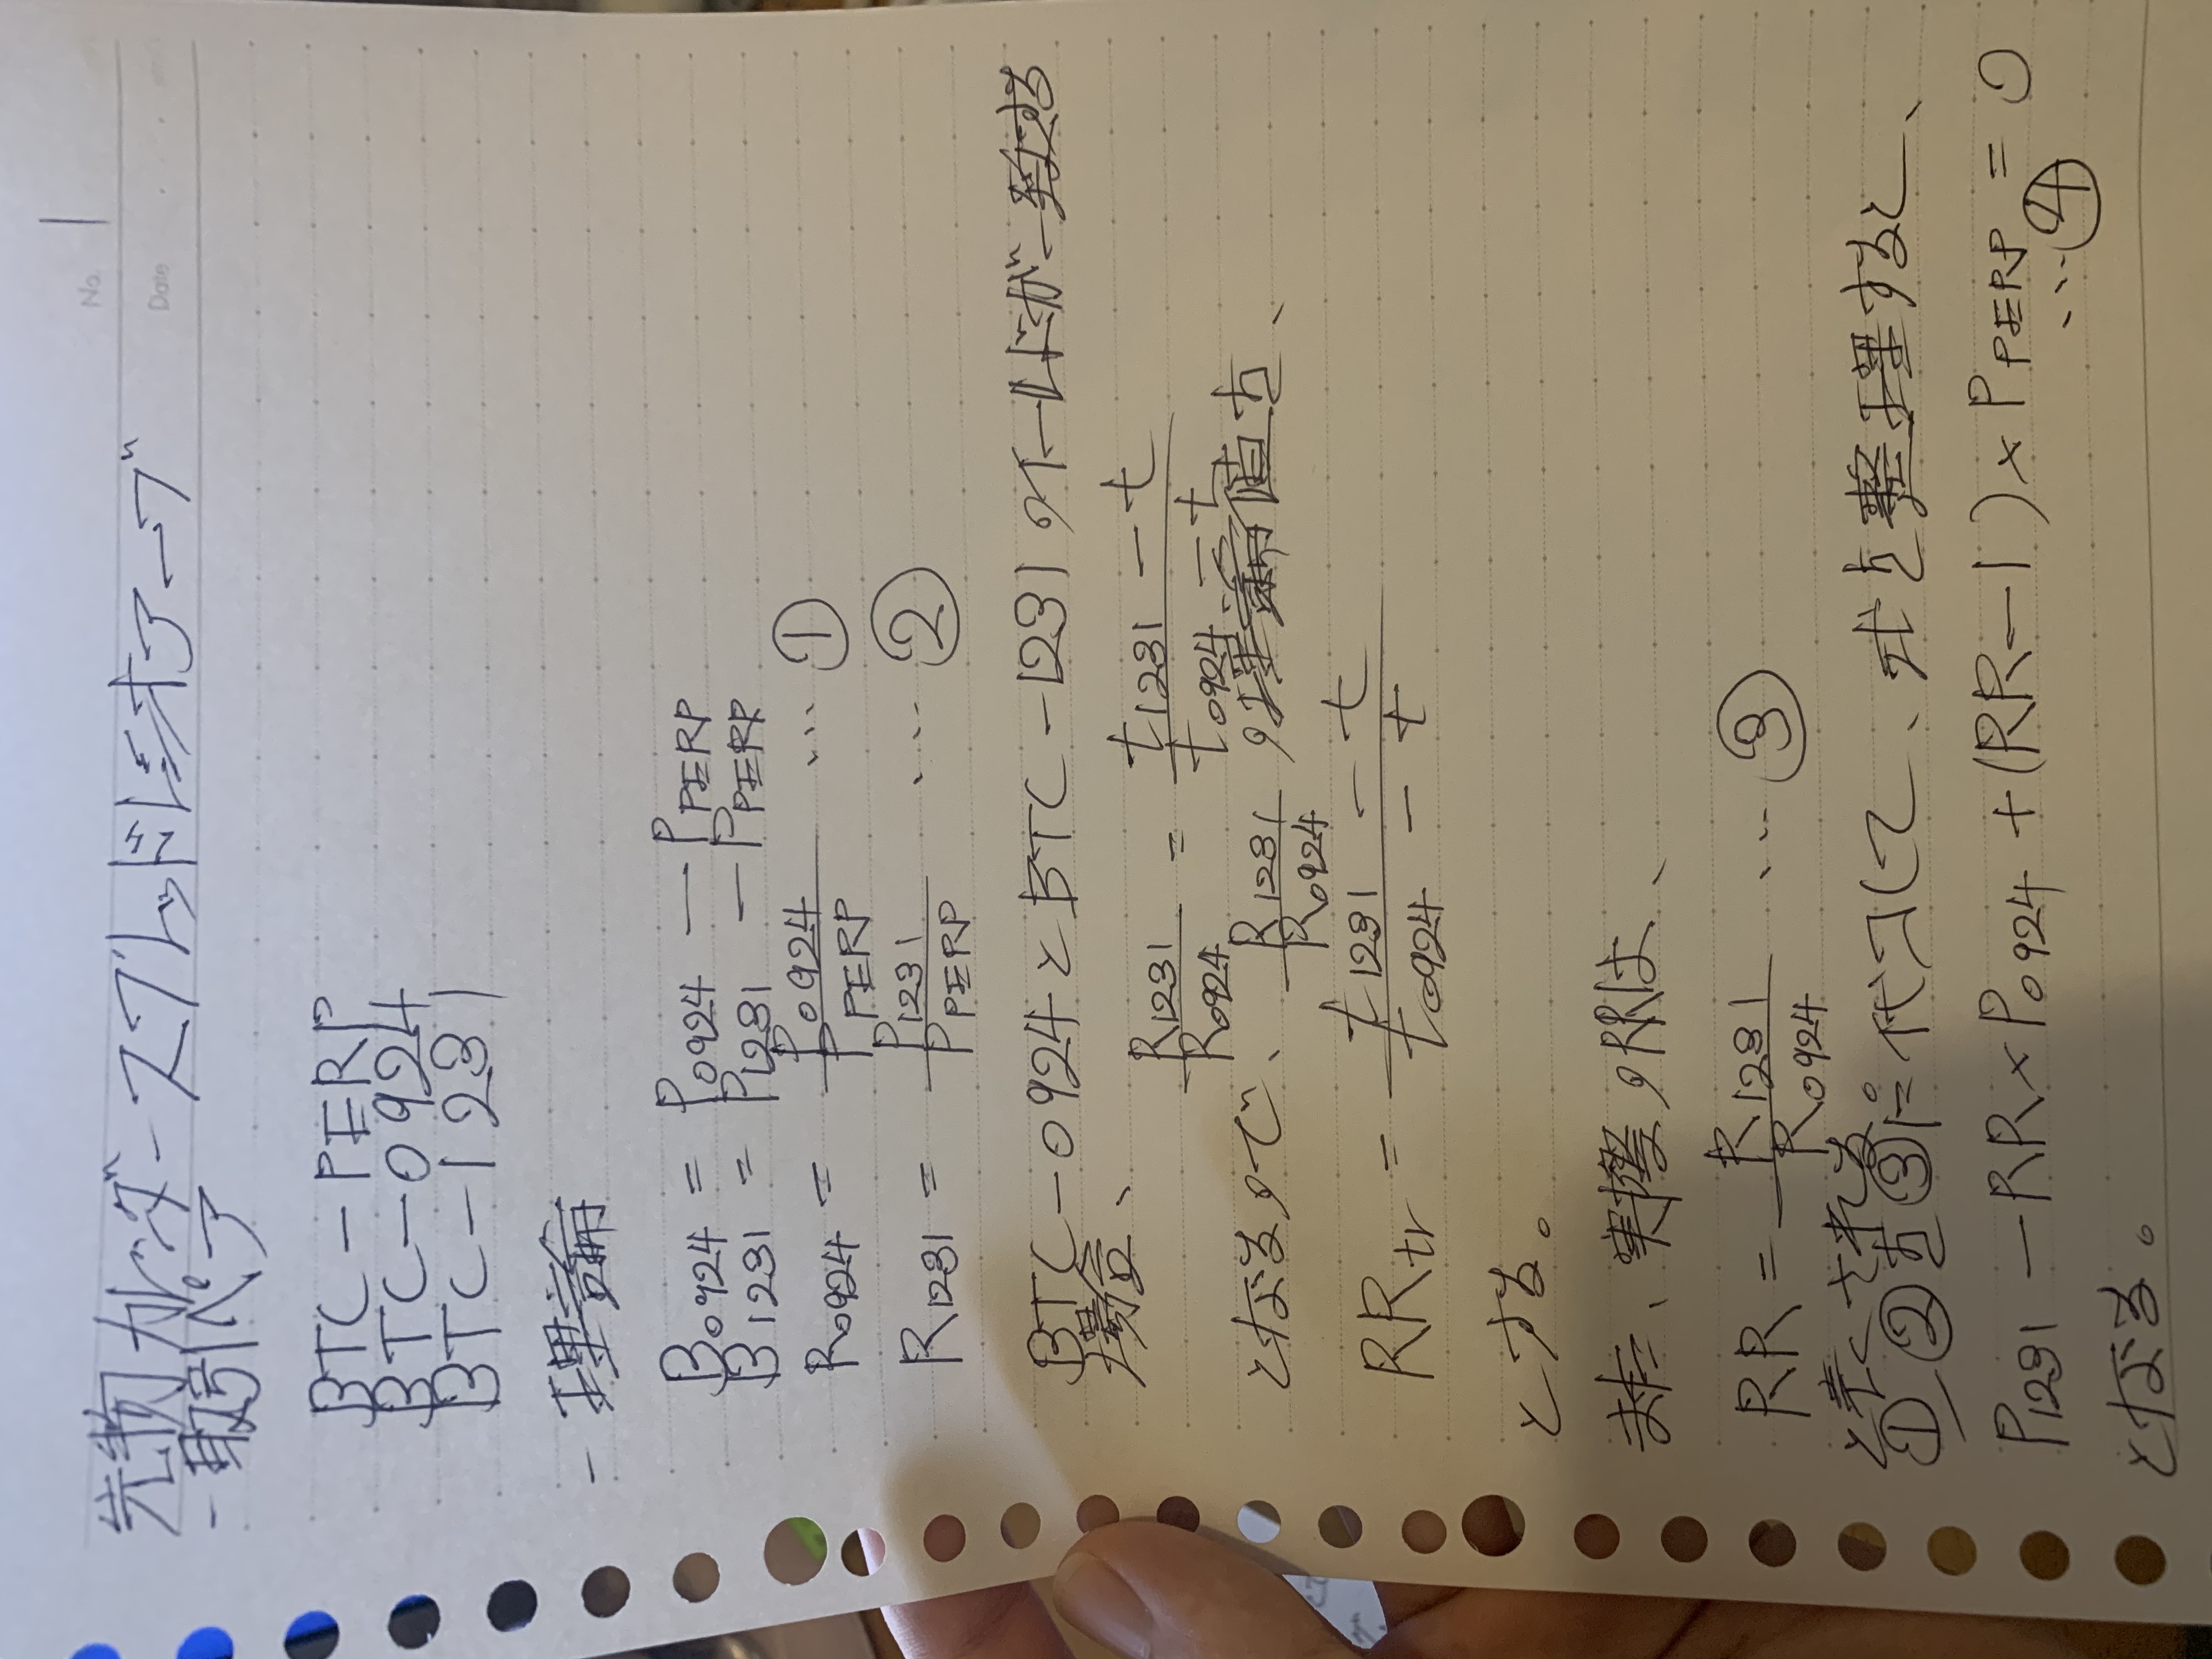 No. 1
Date
先物カレンダースプレッドレシオアーブ
- 取引ペア
BTC-PERP
BTC-0924
BTC-1231
- 理論
B0924 = P0924 - PPERP
B1231 = P1231 - PPERP
R0924 = P0924 / PPERP … ①
R1231 = P1231 / PPERP … ②
BTC-0924とBTC-1231のイールドが一致する
場合、
R1231 / R0924 = (t1231 - t) / (t0924 - t)
となるので、R1231 / R0924 の理論値を、
RRtr = (t1231 - t) / (t0924 - t)
とする。
また、実際のRRは、
RR = R1231 / R0924 … ③
と表くされる。
①、②を③に代入して、式を整理すると、
P1231 - RR × P0924 + (RR - 1) × PPERP = 0
… ④
となる。